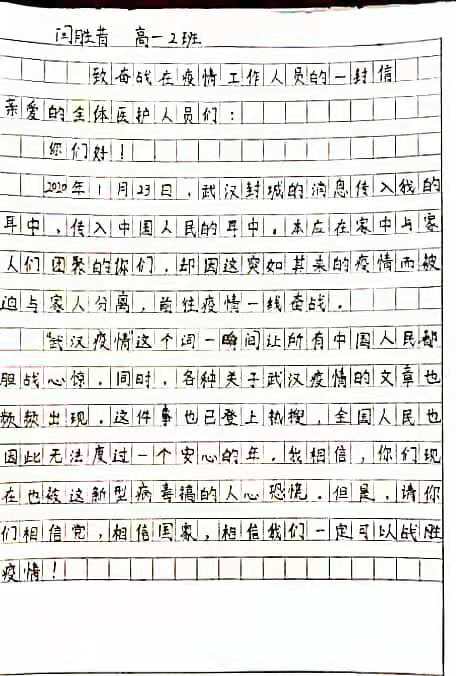 闫胜昔 高一2班
致奋战在疫情工作人员的一封信
亲爱的全体医护人员们：
你们好！
2020年1月23日，武汉封城的消息传入我的
耳中，传入中国人民的耳中。本应在家中与家
人们团聚的你们，却因这突如其来的疫情而被
迫与家人分离，前往疫情一线奋战。
"武汉疫情"这个词一瞬间让所有中国人民都
胆战心惊，同时，各种关于武汉疫情的文章也
频频出现，这件事也已登上热搜，全国人民也
因此无法度过一个安心的年。我相信，你们现
在也被这新型病毒搞的人心恐慌。但是，请你
们相信党，相信国家，相信我们一定可以战胜
疫情！